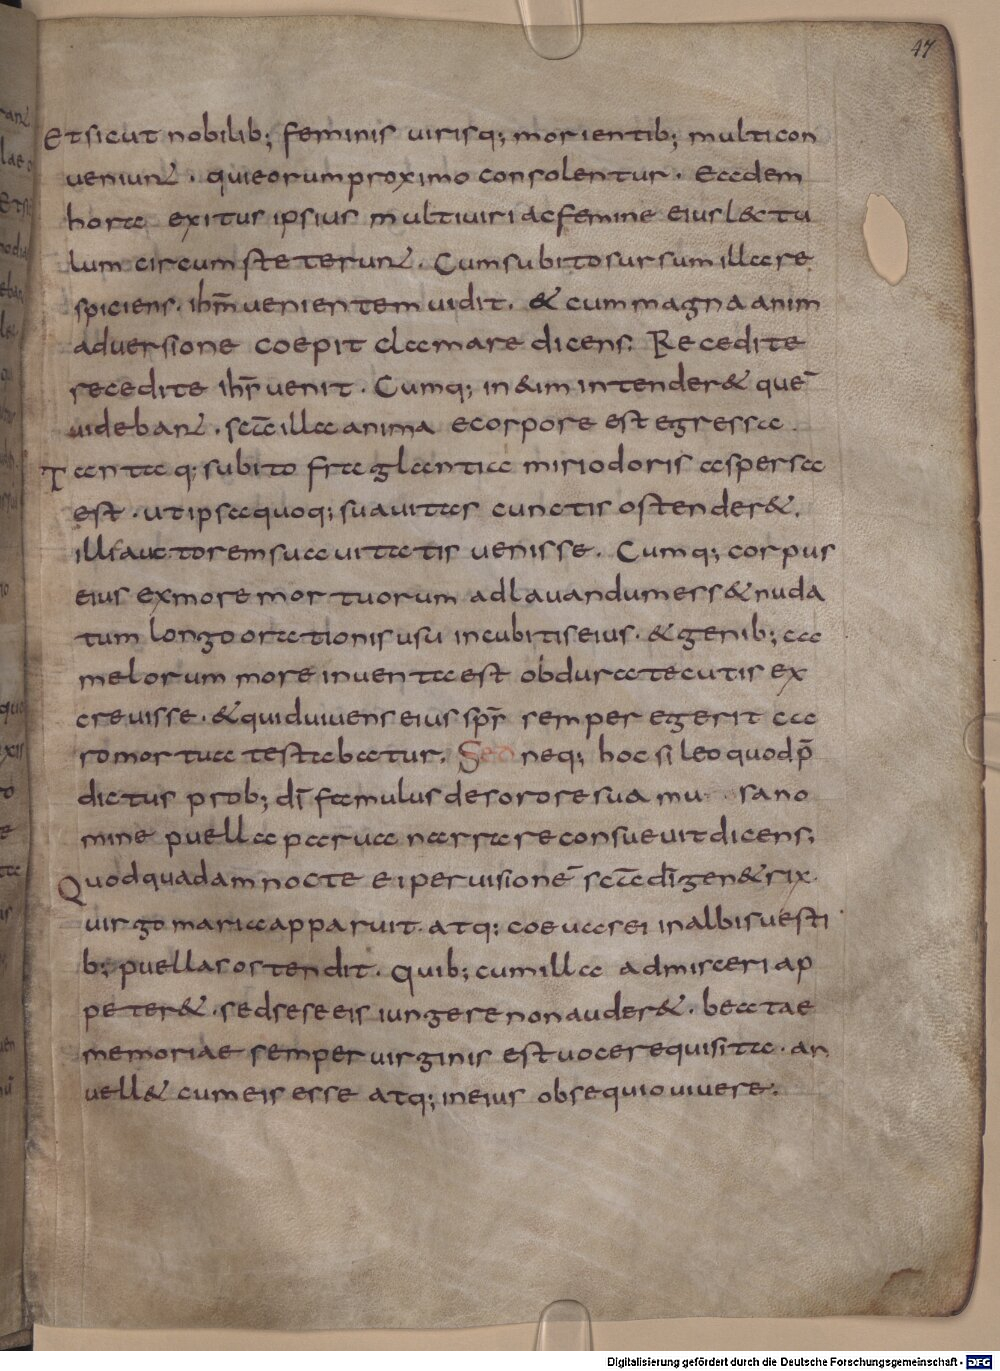 47
Et sicut nobilib; feminis uirisq; morientib; multi con
ueniunt . qui eorum proximo consolentur . Eadem
hora exitus ipsius multi uiri ac femine eius lectu
lum circumsteterunt . Cum subito sursum illa re
spiciens . ihm̄ uenientem uidit . & cum magna anim
aduersione coepit clamare dicens . Recedite
recedite ihs̄ uenit . Cumq; in eum intender& quē
uidebant . scā illa anima e corpore est egressa .
Tantaq; subito fraglantia miri odoris aspersa
est . ut ipsa quoq; suauitas cunctis ostender& .
illis auctorem suauitatis uenisse . Cumq; corpus
eius ex more mortuorum ad lauandum ess& nuda
tum longo orationis usu in cubitis eius . & genib; ca
melorum more inuenta est obdurate cutis ex
creuisse . & quid uiuens eius sps̄ semper egerit ca
ro mortua testabatur . Sed neq; hoc sileo quod p̄
dictus prob; dī famulus de sorore sua mu sa no
mine puella parua narrare consueuit dicens ;
Quod quadam nocte ei per uisionē scā dī genetrix
uirgo maria apparuit . atq; coeuas ei in albis uesti
b; puellas ostendit . Quib; cum illa admisceri ap
peter& . sed sese eis iungere non auder& . beatae
memoriae semper uirginis est uoce requisita . an
uell& cum eis esse atq; in eius obsequio uiuere .
Digitalisierung gefördert durch die Deutsche Forschungsgemeinschaft - DFG